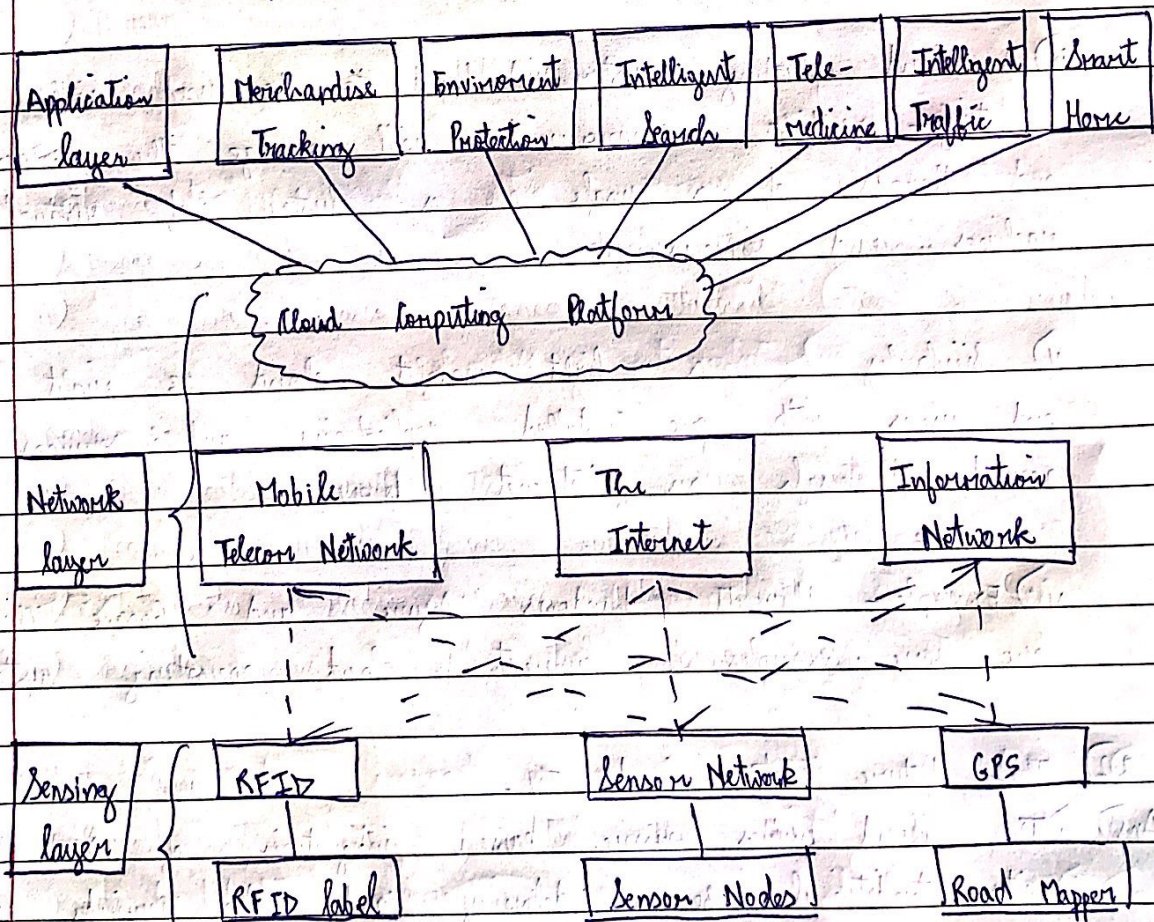 Application
layer
Merchandise
Tracking
Enviroment
Protection
Intelligent
Search
Tele-
medicine
Intelligent
Traffic
Smart
Home
Cloud Computing Platform
Network
layer
Mobile
Telecom Network
The
Internet
Information
Network
Sensing
layer
RFID
Sensor Network
GPS
RFID label
Sensor Nodes
Road Mapper